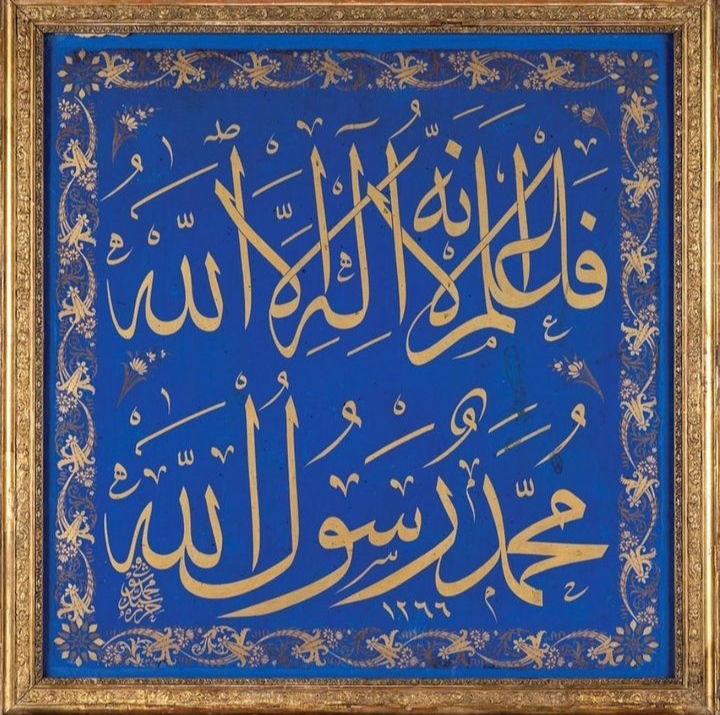 فَاعْلَمْ أَنَّهُ لَا إِلٰهَ إِلَّا اللّٰهُ
مُحَمَّدٌ رَسُولُ اللّٰهِ
١٢٦٦